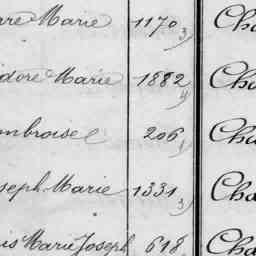 rre Marie 1170 3) Cha
idore Marie 1882 4 Cha
mbroise 206 1) Cha
seph Marie 1331 3) Cha
is Marie Joseph 618 Cha